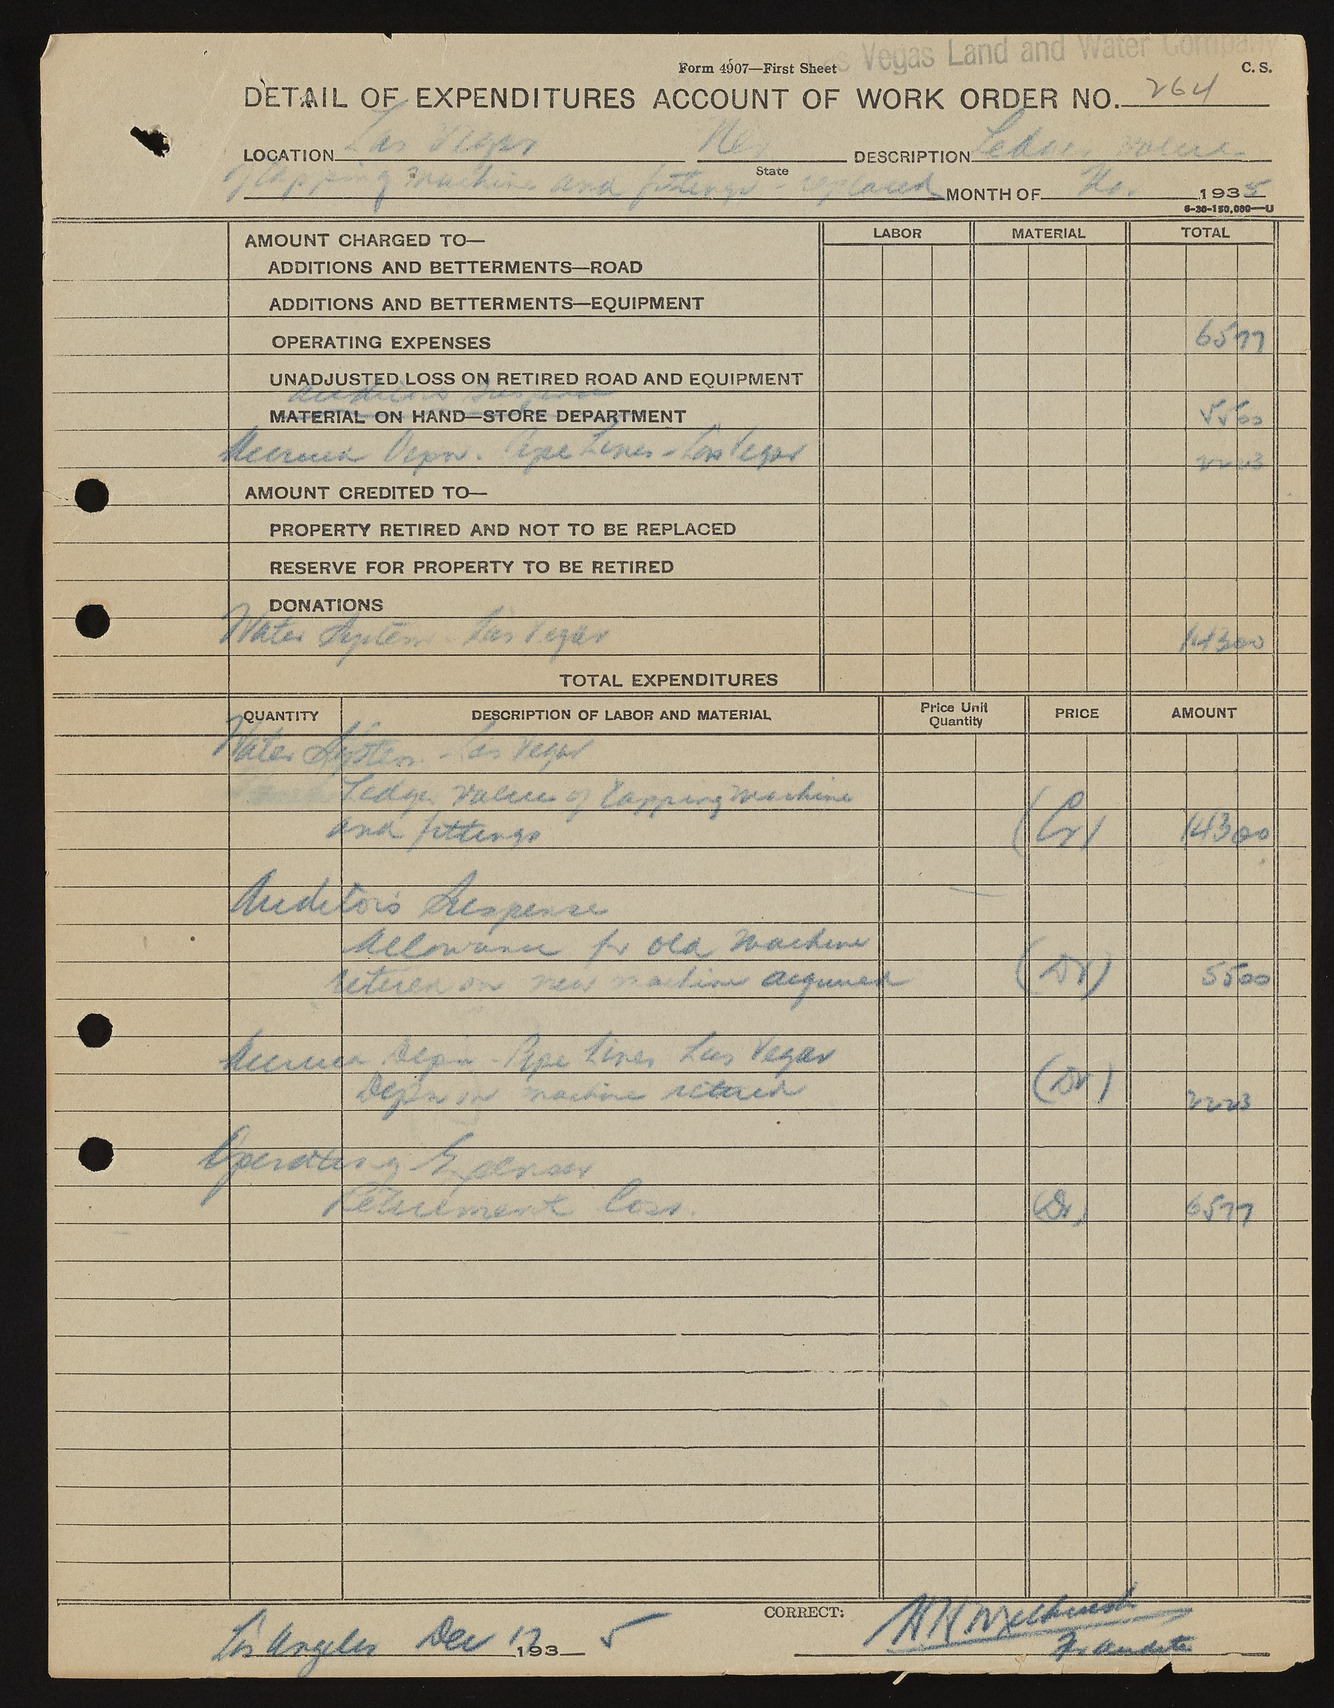 Las Vegas Land and Water Company
Form 4907—First Sheet
C. S.
DETAIL OF EXPENDITURES ACCOUNT OF WORK ORDER NO. 264
LOCATION Las Vegas Nev DESCRIPTION Ledger value
State
of tapping machine and fittings - replaced MONTH OF 1935
6-30-150,000—U
AMOUNT CHARGED TO— LABOR MATERIAL TOTAL
ADDITIONS AND BETTERMENTS—ROAD
ADDITIONS AND BETTERMENTS—EQUIPMENT
OPERATING EXPENSES 6577
UNADJUSTED LOSS ON RETIRED ROAD AND EQUIPMENT
Auditors Suspense
MATERIAL ON HAND—STORE DEPARTMENT 5500
Accrued Depn. Pipe Lines - Las Vegas 2223
AMOUNT CREDITED TO—
PROPERTY RETIRED AND NOT TO BE REPLACED
RESERVE FOR PROPERTY TO BE RETIRED
DONATIONS
Water System - Las Vegas 14300
TOTAL EXPENDITURES
QUANTITY DESCRIPTION OF LABOR AND MATERIAL Price Unit Quantity PRICE AMOUNT
Water System - Las Vegas
Ledger value of tapping machine
and fittings (Cr) 14300
Auditors Suspense
Allowance for old machine
retired on new machine acquired (Dr) 5500
Accrued Depn - Pipe Lines Las Vegas
Depn on machine retired (Dr) 2223
Operating Expenses
Retirement Loss. (Dr) 6577
CORRECT:
Los Angeles Dec 17 193 5
for Auditor